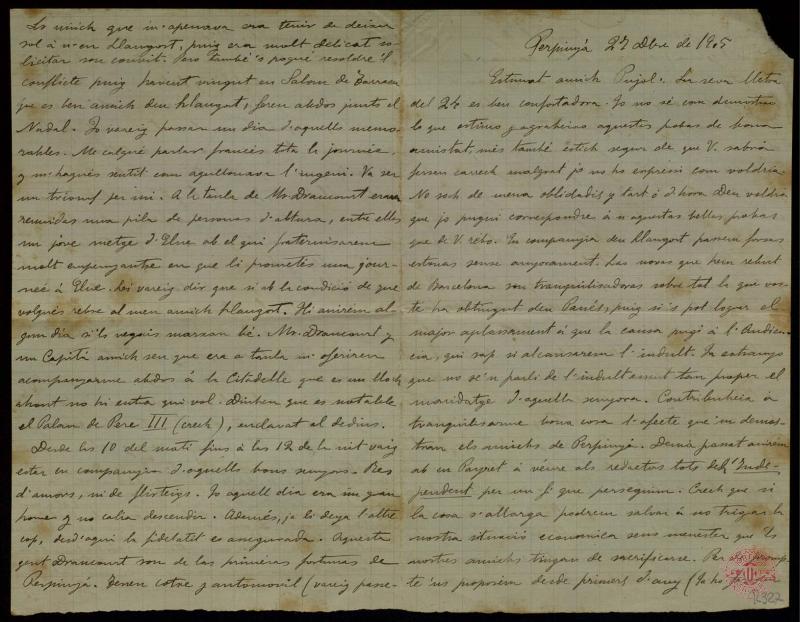 Perpinyá 27 Dbre de 1905
Estimat amich Pujol: La seva lletra
del 24 es ben confortadora. Jo no sé com demostrar
lo que estimo y agraheixo aquestas probas de bona
amistat, més també estich segur de que V. sabrá
fersen carrech malgrat jo no ho expressi com voldria.
No soch de mena oblidadís y tart ó d'hora Deu voldrá
que jo pugui correspondre á n'aquestas bellas probas
que de V. rebo. En companyia den Llangort passem forsas
estonas sense anyorament. Las novas que hem rebut
de Barcelona son tranquilisadoras sobre tot lo que vos-
té ha obtingut den Panés, puig si's pot lograr el
major aplassament á que la causa pugi á l'Audien-
cia, qui sap si alcansarem l'indult. Ja estranyo
que no se'n parli de l'indult essent tan proper el
maridatge d'aquella senyora. Contribueix á
tranquilisarme bona cosa l'afecte que'm demos-
tran els amichs de Perpinyá. Demá passat anirem
ab en Payret á veure als redactors tots del "Inde-
pendent per un fí que perseguim. Crech que si
la cosa s'allarga podrem salvar á no trigar la
nostra situació economica sens menester que Us
nostres amichs tingan de sacrificarse. Per
te'ns proposem desde primers d'any (Ja ho
Lo unich que m'apenava era tenir de deixar
sol á n'en Llangort, puig era molt delicat so-
licitar son convit. Pero també's pogué resoldre'l
conflicte puig havent vingut en Salom de Tarrasa
que es ben amich den Llangort, foren abdos junts el
Nadal. Jo vareig passar un dia d'aquells memo-
rables. Me calgué parlar francés tota la journée,
y m'hagués sentit com agullonava l'ingeni. Va ser
un triomf per mi. A la taula de Mr. Drancourt eran
reunidas una pila de personas d'altura, entre ellas
un jove metge d'Elne ab el qui fraternisarem
molt empenyantse en que li prometés una jour-
née á Elne. Loi vareig dir que si ab la condició de que
volgués rebre al meu amich Llangort. Hi anirem al-
gun dia si'ls negocis marxan bé. Mr. Drancourt y
un Capitá amich seu que era á taula m'oferiren
acompanyarme abdos á la Citadelle que es un lloch
ahont no hi entra qui vol. Diuhen que es notable
el Palau de Pere III (crech), enclavat al dedins.
Desde las 10 del matí fins á las 12 de la nit vaig
estar en companyia d'aquells bons senyors. Res
d'amors, ni de flirteigs. Jo aquell dia era un gran
home y no calia descendir. Además, ja li deya l'altre
cop, desd'aqui la fidelitat es assegurada. Aquesta
gent Drancourt son de las primeras fortunas de
Perpinyá. Tenen cotxe y automovil (vareig passe-
12327